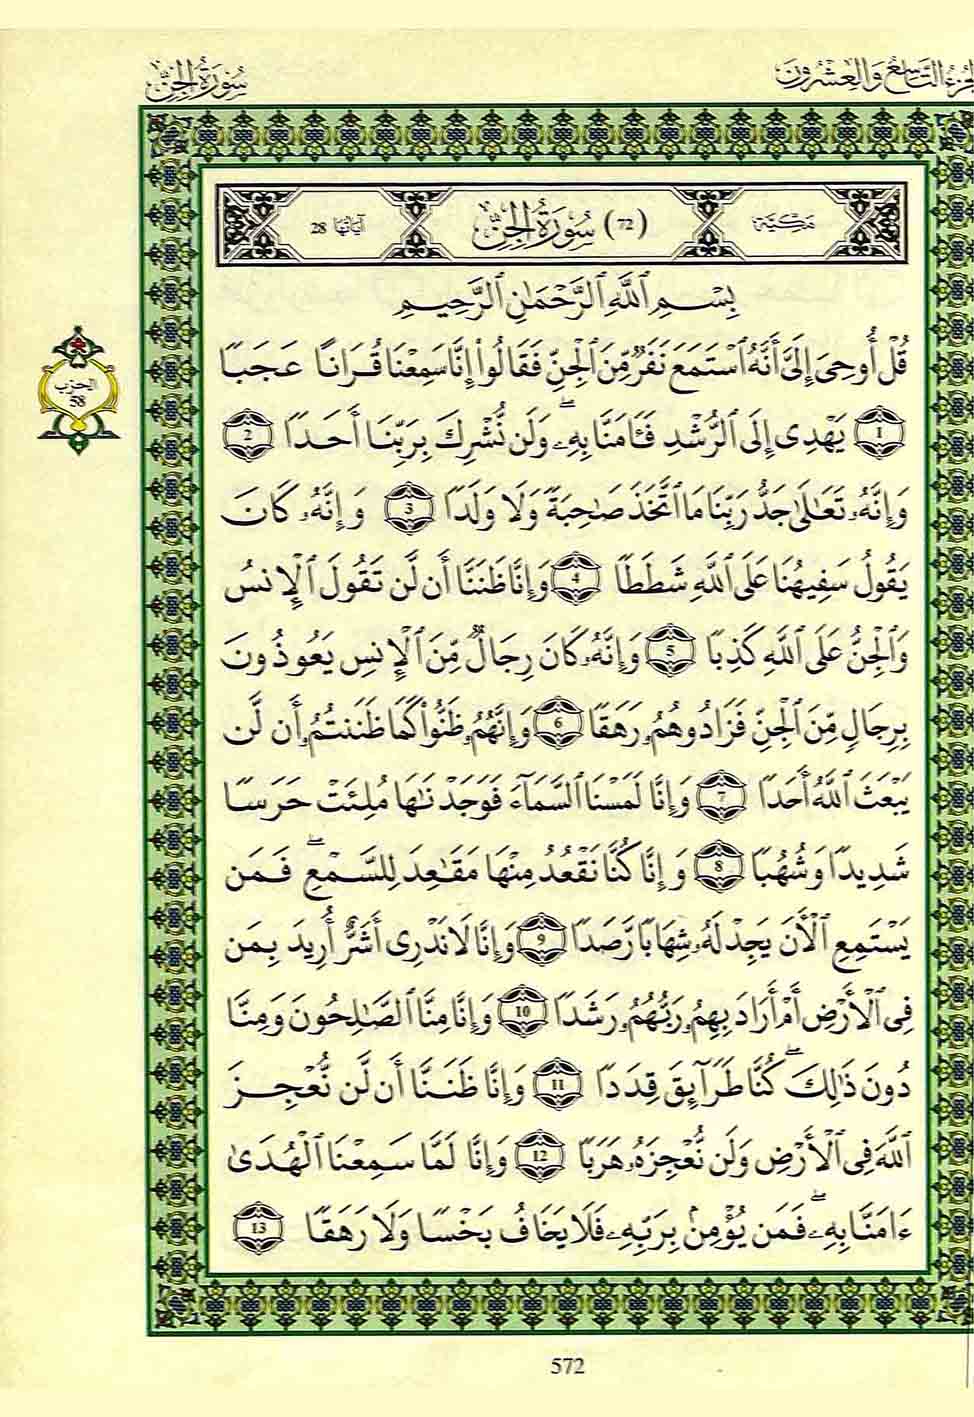 الجزء التاسع والعشرون
سورة الجن
مكية
(72) سُورَةُ الجِنِّ
آياتها 28
بِسْمِ اللَّهِ الرَّحْمَانِ الرَّحِيمِ
قُلْ أُوحِىَ إِلَىَّ أَنَّهُ اسْتَمَعَ نَفَرٌ مِّنَ الْجِنِّ فَقَالُواْ إِنَّا سَمِعْنَا قُرَانًا عَجَبًا
1 يَهْدِى إِلَى الرُّشْدِ فَـَٔامَنَّا بِهِۦ وَلَن نُّشْرِكَ بِرَبِّنَا أَحَدًا 2
وَإِنَّهُۥ تَعَٰلَىٰ جَدُّ رَبِّنَا مَا اتَّخَذَ صَٰحِبَةً وَلَا وَلَدًا 3 وَإِنَّهُۥ كَانَ
يَقُولُ سَفِيهُنَا عَلَى اللَّهِ شَطَطًا 4 وَإِنَّا ظَنَنَّا أَن لَّن تَقُولَ الْإِنسُ
وَالْجِنُّ عَلَى اللَّهِ كَذِبًا 5 وَإِنَّهُۥ كَانَ رِجَالٌ مِّنَ الْإِنسِ يَعُوذُونَ
بِرِجَالٍ مِّنَ الْجِنِّ فَزَادُوهُمُۥ رَهَقًا 6 وَإِنَّهُمُۥ ظَنُّواْ كَمَا ظَنَنتُمُۥ أَن لَّن
يَبْعَثَ اللَّهُ أَحَدًا 7 وَإِنَّا لَمَسْنَا السَّمَآءَ فَوَجَدْنَٰهَا مُلِئَتْ حَرَسًا
شَدِيدًا وَشُهُبًا 8 وَإِنَّا كُنَّا نَقْعُدُ مِنْهَا مَقَٰعِدَ لِلسَّمْعِ فَمَن
يَسْتَمِعِ الْأَنَ يَجِدْ لَهُۥ شِهَابًا رَّصَدًا 9 وَإِنَّا لَا نَدْرِى أَشَرٌّ أُرِيدَ بِمَن
فِى الْأَرْضِ أَمْ أَرَادَ بِهِمُۥ رَبُّهُمُۥ رَشَدًا 10 وَإِنَّا مِنَّا الصَّٰلِحُونَ وَمِنَّا
دُونَ ذَٰلِكَ كُنَّا طَرَآئِقَ قِدَدًا 11 وَإِنَّا ظَنَنَّا أَن لَّن نُّعْجِزَ
اللَّهَ فِى الْأَرْضِ وَلَن نُّعْجِزَهُۥ هَرَبًا 12 وَإِنَّا لَمَّا سَمِعْنَا الْهُدَىٰ
ءَامَنَّا بِهِۦ فَمَن يُؤْمِنۢ بِرَبِّهِۦ فَلَا يَخَافُ بَخْسًا وَلَا رَهَقًا 13
الحزب
58
572